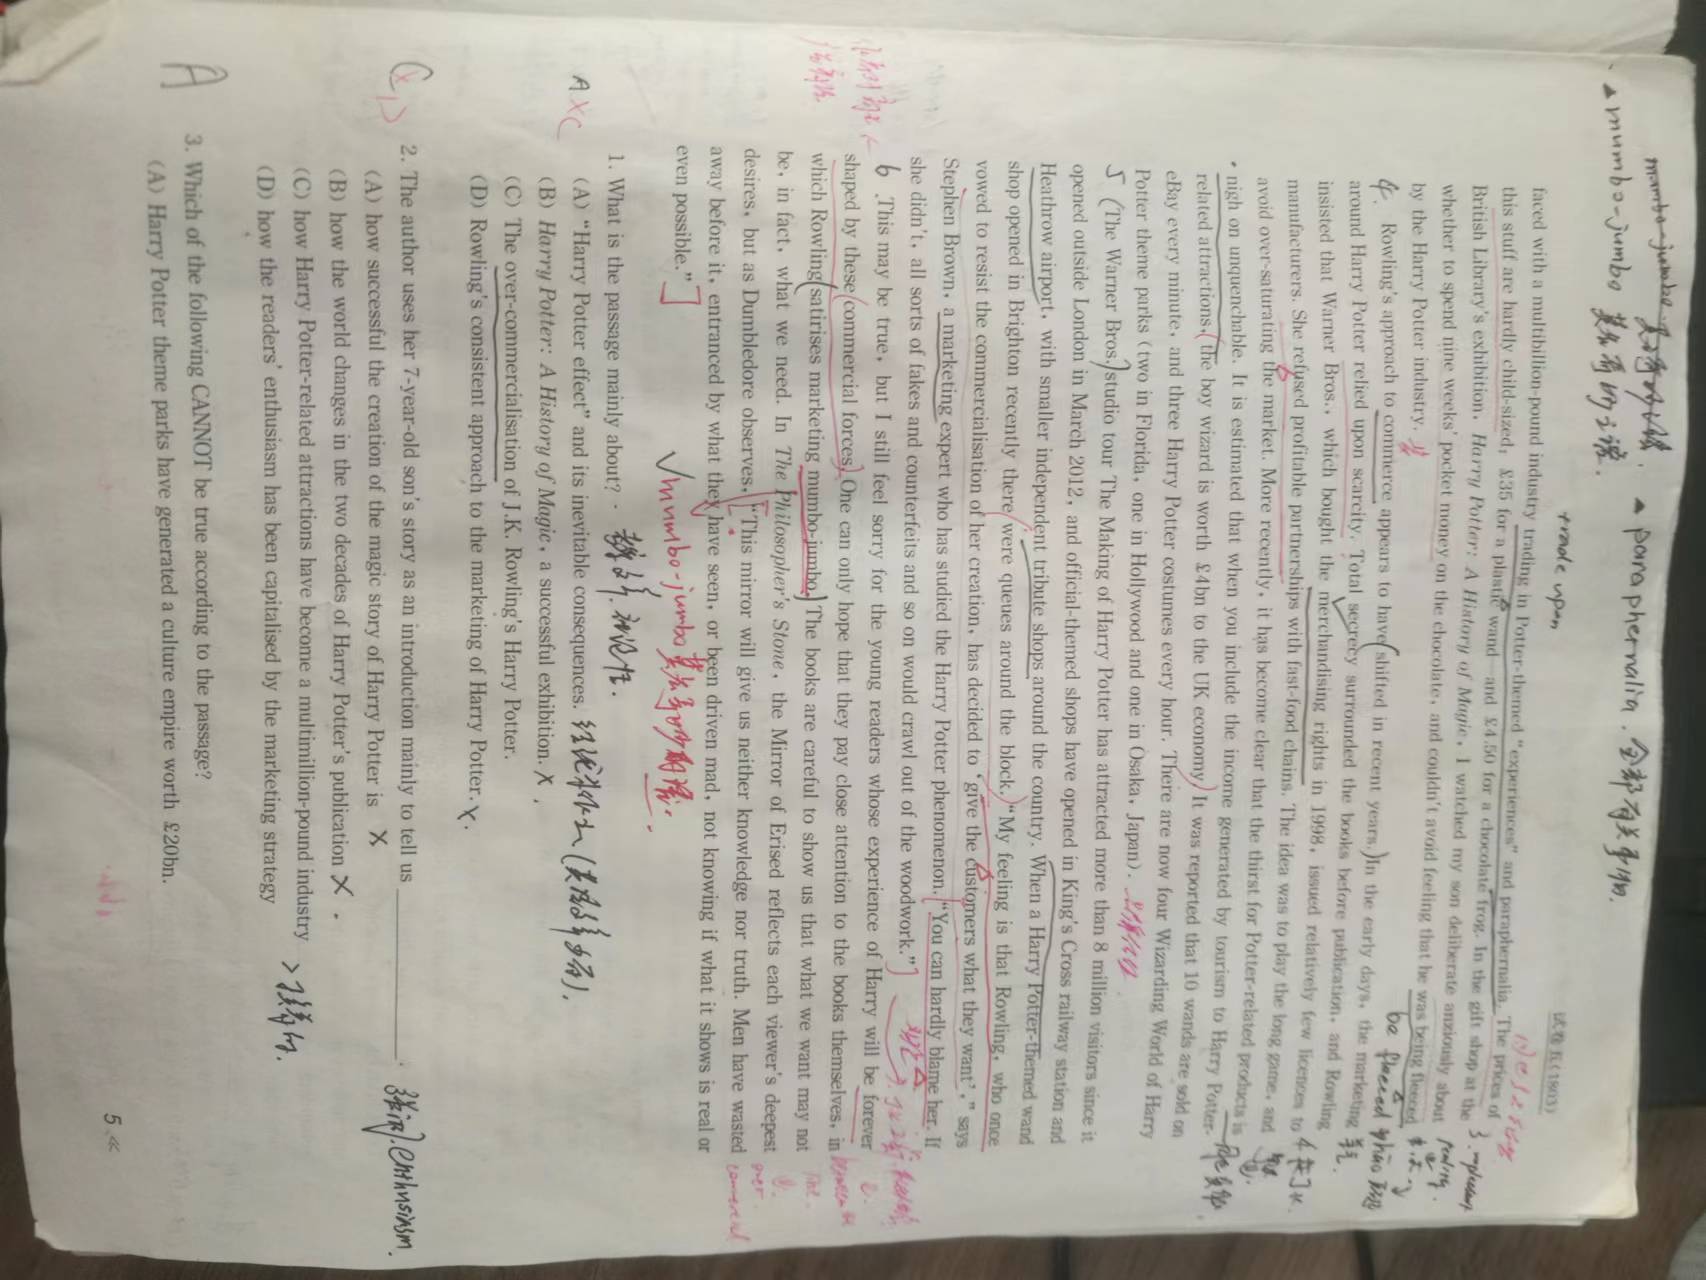 mumbo-jumbo
▲ mumbo-jumbo
▲ paraphernalia. 全部有关事物.
trade upon
试卷五(1803)
faced with a multibillion-pound industry trading in Potter-themed "experiences" and paraphernalia. The prices of
this stuff are hardly child-sized, £35 for a plastic wand and £4.50 for a chocolate frog. In the gift shop at the
British Library's exhibition, Harry Potter: A History of Magic, I watched my son deliberate anxiously about
whether to spend nine weeks' pocket money on the chocolate, and couldn't avoid feeling that he was being fleeced
by the Harry Potter industry.
be fleeced
4. Rowling's approach to commerce appears to have shifted in recent years. In the early days, the marketing
around Harry Potter relied upon scarcity. Total secrecy surrounded the books before publication, and Rowling
insisted that Warner Bros., which bought the merchandising rights in 1998, issued relatively few licences to
manufacturers. She refused profitable partnerships with fast-food chains. The idea was to play the long game, and
avoid over-saturating the market. More recently, it has become clear that the thirst for Potter-related products is
nigh on unquenchable. It is estimated that when you include the income generated by tourism to Harry Potter-
related attractions, the boy wizard is worth £4bn to the UK economy. It was reported that 10 wands are sold on
eBay every minute, and three Harry Potter costumes every hour. There are now four Wizarding World of Harry
Potter theme parks (two in Florida, one in Hollywood and one in Osaka, Japan).
5 The Warner Bros. studio tour The Making of Harry Potter has attracted more than 8 million visitors since it
opened outside London in March 2012, and official-themed shops have opened in King's Cross railway station and
Heathrow airport, with smaller independent tribute shops around the country. When a Harry Potter-themed wand
shop opened in Brighton recently there were queues around the block. "My feeling is that Rowling, who once
vowed to resist the commercialisation of her creation, has decided to 'give the customers what they want'," says
Stephen Brown, a marketing expert who has studied the Harry Potter phenomenon. "You can hardly blame her. If
she didn't, all sorts of fakes and counterfeits and so on would crawl out of the woodwork."
6. This may be true, but I still feel sorry for the young readers whose experience of Harry will be forever
shaped by these commercial forces. One can only hope that they pay close attention to the books themselves, in
which Rowling satirises marketing mumbo-jumbo. The books are careful to show us that what we want may not
be, in fact, what we need. In The Philosopher's Stone, the Mirror of Erised reflects each viewer's deepest
desires, but as Dumbledore observes, "This mirror will give us neither knowledge nor truth. Men have wasted
away before it, entranced by what they have seen, or been driven mad, not knowing if what it shows is real or
even possible."
mumbo-jumbo
1. What is the passage mainly about?
A X C
(A) "Harry Potter effect" and its inevitable consequences.
(B) Harry Potter: A History of Magic, a successful exhibition. X
(C) The over-commercialisation of J.K. Rowling's Harry Potter.
(D) Rowling's consistent approach to the marketing of Harry Potter. X
2. The author uses her 7-year-old son's story as an introduction mainly to tell us ______.
(A) how successful the creation of the magic story of Harry Potter is X
(B) how the world changes in the two decades of Harry Potter's publication X
(C) how Harry Potter-related attractions have become a multimillion-pound industry
(D) how the readers' enthusiasm has been capitalised by the marketing strategy
enthusiasm
A
3. Which of the following CANNOT be true according to the passage?
(A) Harry Potter theme parks have generated a culture empire worth £20bn.
5 <<